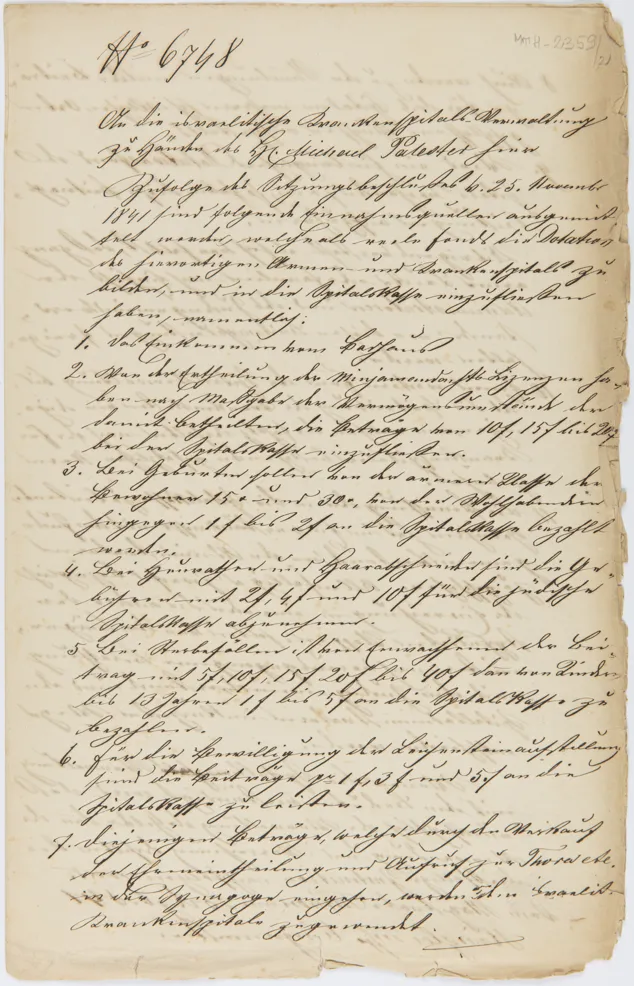 No 6748
MTH-2359/21
An die israelitische Krankenspitals-Verwaltung
zu Händen des H. Michael Polester hier
Zufolge des Sitzungsbeschlußes v. 25. Novembr
1841 sind folgende Einnahmsquellen ausgemit-
telt worden, welche als reele Fonds die Dotation
des hierortigen Armen- und Krankenspitals zu
bilden, und in die Spitalskasse einzufließen
haben, namentlich:
1. Das Einkommen vom Badhaus
2. Von der Ertheilung der Minjanandachts-Lizenzen ha-
ben nach Maßgabe der Vermögensumstände der
damit betheilten, die Beträge von 10f, 15f bis 20f
bei der Spitalskasse einzufließen.
3. Bei Geburten sollen von der ärmeren Klasse der
Bewohner 15x und 30x, von den Wohlhabenderen
hingegen 1f bis 2f an die Spitalskasse bezahlt
werden.
4. Bei Heurathen und Haarabschneiden sind die Ge-
bühren mit 2f, 4f und 10f für die jüdische
Spitalskasse abzunehmen.
5 Bei Sterbefällen ist von Erwachsenen der Bei-
trag mit 5f, 10f, 15f 20f bis 40f dann von Kindern
bis 13 Jahren 1f bis 5f an die Spitalskasse zu
bezahlen.
6. Für die Bewilligung der Leichensteinaufstellung
sind die Beiträge pr 1f, 3f und 5f an die
Spitalskasse zu leisten.
7. Diejenigen Beträge, welche durch den Verkauf
der Ehreneintheilung und Aufruf zur Thora etc.
in der Synagoge eingehen, werden dem israelit-
Krankenspitale zugewendet.